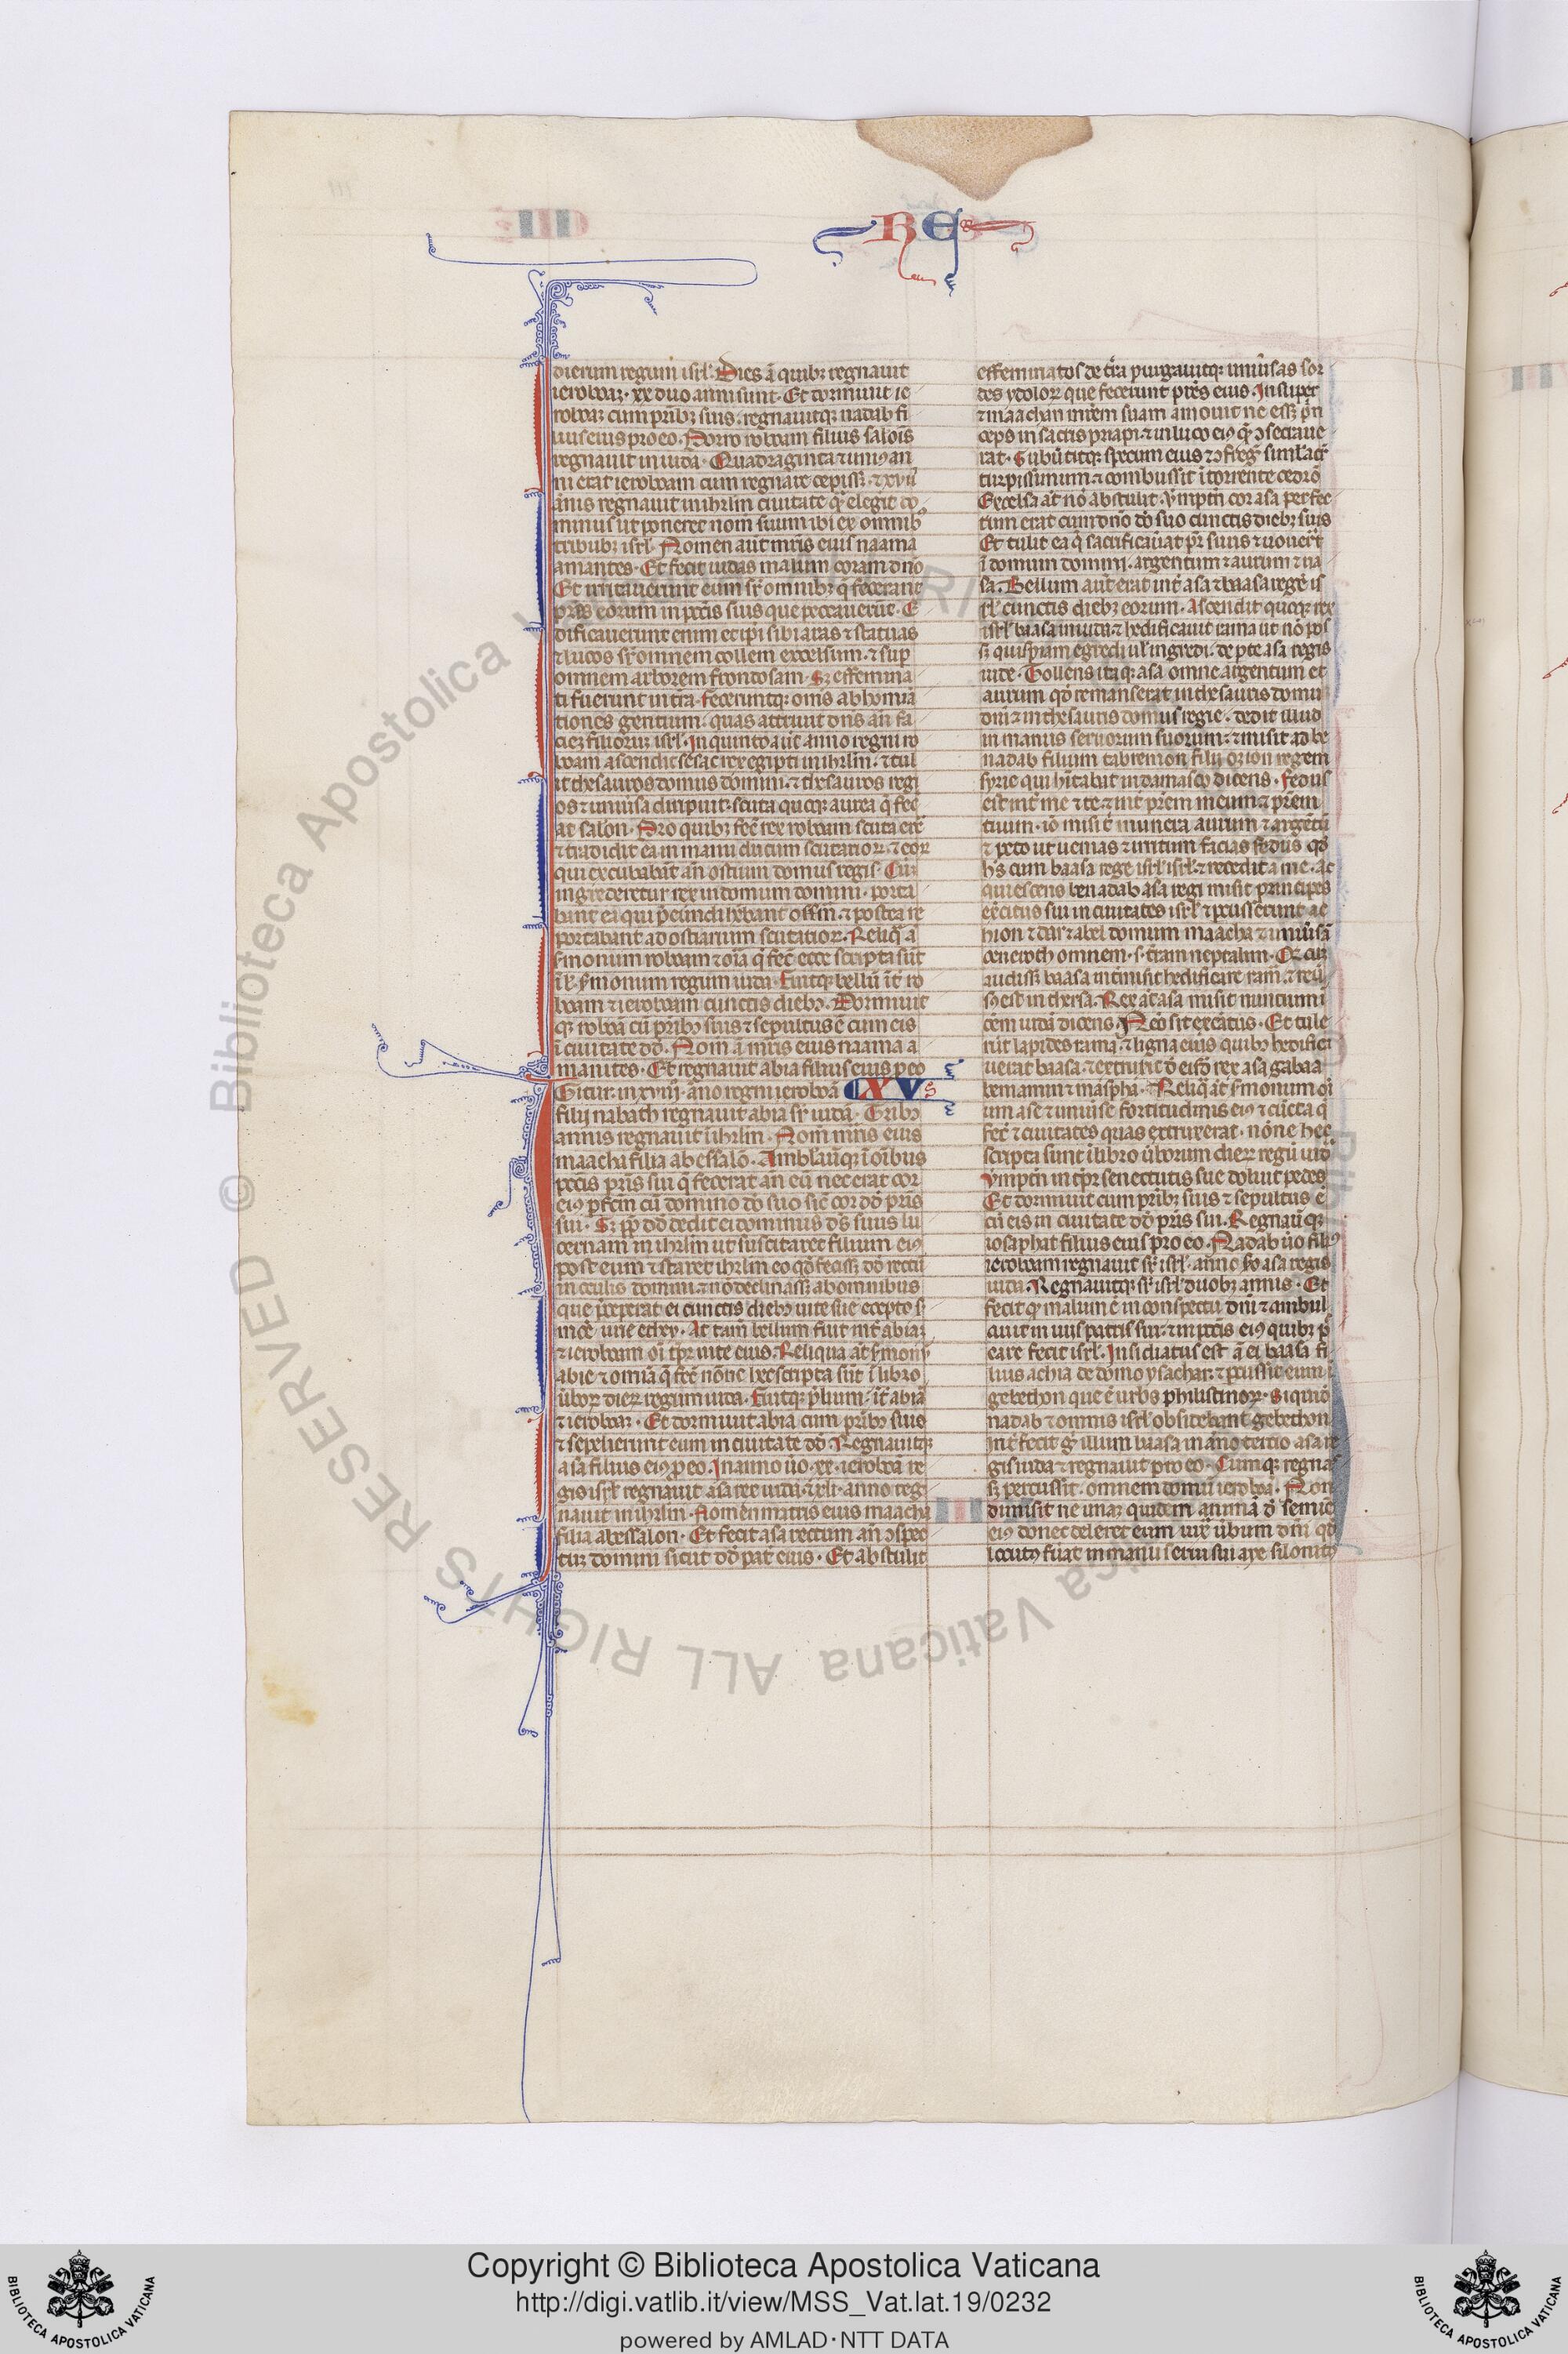 RE
dierum regum isrł. Dies ā quibȝ regnauit
ieroboaȝ. xx duo anni sunt. Et dormiuit ie
roboaȝ cum pr̄ibȝ suis. regnauitqȝ nadab fi
lius eius pro eo. Porro roboam filius salois
regnauit in iuda. Quadraginta ⁊ uniꝰ an
ni erat ieroboam cum regnare cepissȝ. ⁊ xvii
ānis regnauit in ihrlm ciuitate q̄ elegit do
minus ut poneret nom̄ suum ibi ex omnibꝰ
tribubȝ isrł. Nomen aut̄ mr̄is eius naama
amanites. Et fecit iudas malum coram dn̄o
Et irritauerunt eum sr̄ omnibȝ q̄ fecerant
pr̄es eorum in pctīs suis que peccauerūt. E
dificauerunt enim et ip̄i sibi aras ⁊ statuas
⁊ lucos sr̄ omnem collem excelsum. ⁊ sup
omnem arborem frondosam. Sȝ effemina
ti fuerunt in tr̄a. feceruntqȝ om̄s abhomīa
tiones gentium. quas attriuit dn̄s an̄ fa
cieȝ filioruȝ isrł. In quinto aut̄ anno regni ro
boam ascendit sesac rex egipti in ihrlm. ⁊ tul
it thesauros domus domini. ⁊ thesauros regi
os ⁊ uniūsa diripuit. scuta quoqȝ aurea q̄ fec̄
at salon. Pro quibȝ fec̄ rex roboam scuta ere
⁊ tradidit ea in manu ducum scutarioꝝ. ⁊ eoꝝ
qui excubabāt an̄ ostium domus regis. Cū
ingrederetur rex in domum domini. porta
bant ea qui p̄eundi hēbant offm̄. ⁊ postea re
portabant ad ostiarium scutarioꝝ. Reliq̄ a
s̄monum roboam ⁊ oīa q̄ fec̄ ecce scripta sūt
ī ł. s̄monum regum iuda. Fuitqȝ bellū īt̄ ro
boam ⁊ ieroboam cunctis diebȝ. Dormiuit
qȝ roboā cū pr̄ibȝ suis ⁊ sepultus ē cum eis
ī ciuitate dd̄. Nom̄ ā mr̄is eius naama a
manites. Et regnauit abia filius eius p eo
Gitur. in xviij. āno regni ieroboā CXVS
filij nabath regnauit abia sr̄ iudā. Tribȝ
annis regnauit ī ihrlm. Nom̄ mr̄is eius
maacha filia abessalō. Ambłauitqȝ ī oībus
pctīs pr̄is sui q̄ fecerat an̄ eū nec erat cor
eiꝰ pfcm̄ cū domino dō suo sic̄ cor dd̄ pr̄is
sui. Sȝ pp̄ dd̄ dedit ei dominus d̄s suus lu
cernam in ihrlm ut suscitaret filium eiꝰ
post eum ⁊ staret ihrlm eo qd̄ fecissȝ dd̄ rectū
in oculis domini ⁊ nō declinassȝ ab omnibus
que p̄ceperat ei cunctis diebȝ uite sue excepto s̄
mōe urie ethey. At tam̄ bellum fuit int̄ abiaȝ
⁊ ieroboam oī tp̄r uite eius. Reliqua at̄ s̄monȝ
abie ⁊ omīa q̄ fec̄ nōne hec scripta sūt ī libro
ūboꝝ dieꝝ regum iuda. Fuitqȝ p̄lium. īt̄ abiā
⁊ ieroboaȝ. Et dormiuit abia cum pr̄ibȝ suis
⁊ sepelierunt eum in ciuitate dd̄. Regnauitqȝ
asa filius eiꝰ p eo. In anno ūo. xx. ieroboā re
gis isrł regnauit asa rex iuda. ⁊ xli. anno reg
nauit in ihrlm. Nomen matris eius maacha
filia abessalon. Et fecit asa rectum an̄ ꝯspec
tuȝ domini sicut dd̄ pat̄ eius. Et abstulit
effeminatos de tr̄a purgauitqȝ uniūsas sor
des ydoloꝝ que fecerunt pr̄es eius. Insuper
⁊ maachan mr̄em suam amouit ne essȝ p̄n
ceps in sacris priapi. ⁊ in luco eiꝰ q̄ ꝯsecraue
rat. Subūtitqȝ specum eius ⁊ ꝯfreḡ simłacꝝ
turpissimum. ⁊ combussit ī torrente cedrō
Excelsa at̄ nō abstulit. Ympt̄m cor asa perfec
tum erat cum dn̄o dō suo cunctis diebȝ suis
Et tulit ea q̄ sacrificau̇at pr̄ suus ⁊ uouer̄t
ī domum domini. argentum ⁊ aurum ⁊ ua
sa. Bellum aut̄ erat int̄ asa ⁊ baasa regē is
rł cunctis diebȝ eorum. Ascendit quoqȝ rex
isrł baasa in iudā ⁊ hedificauit rama ut nō pos
sȝ quispiam egredi uł ingredi. de pte asa regis
iude. Tollens itaqȝ asa omne argentum et
aurum qd̄ remanserat in thesauris domus
dn̄i ⁊ in thesauris domus regie. dedit illud
in manus seruorum suorum. ⁊ misit ad be
nadab filium tabremon filij ozion regem
syrie qui hītabat in damasco dicens. Fedus
est int̄ me ⁊ te. ⁊ int̄ pr̄em meum ⁊ pr̄em
tuum. iō misi t̄ munera aurum ⁊ argētū
⁊ peto ut uenias ⁊ irritum facias fedus qd̄
hēs cum baasa rege isrł isrł. ⁊ recedit a me. Ac
quiescens benadab asa regi misit principes
exercitus sui in ciuitates isrł ⁊ pcusserunt ae
hion ⁊ dan ⁊ abel domum maacha ⁊ uniūsā
ceneroth omnem. s. tr̄am neptalim. Qd̄ cuȝ
audissȝ baasa intermisit hedificare ram̄. ⁊ reū
s̄ est in thersa. Rex at̄ asa misit nuncium ī
oēm iudā dicens. Nēo sit excūtus. Et tule
rūt lapides ramā. ⁊ ligna eius quibȝ hedific̄
uerat baasa. ⁊ extruxit d̄ eisd̄ rex asa gabaa
beniamin ⁊ maspha. Reliq̄ at̄ s̄monum oī
um ase ⁊ uniūse fortitudinis eiꝰ ⁊ cūcta q̄
fec̄ ⁊ ciuitates quas extruxerat. nōne hec
scripta sunt ī libro ūborum dieꝝ regū iud̄
Ympt̄m in tp̄r senectutis sue doluit pedes
Et dormiuit cum pr̄ibȝ suis ⁊ sepultus ē
cū eis in ciuitate dd̄ pr̄is sui. Regnauitqȝ
iosaphat filius eius pro eo. Nadab ūo filiꝰ
ieroboam regnauit sr̄ isrł. anno sco asa regis
iuda. Regnauitqȝ sr̄ isrł duobȝ annis. Et
fecit qd̄ malum ē in conspectu dn̄i ⁊ ambul
auit in uiis patris sui. ⁊ in pctīs eiꝰ quibȝ p̄
care fecit isrł. Insidiatus est ā ei baasa fi
lius achia de domo ysachar. ⁊ pcussit eum ī
gebethon que ē urbs philistinoꝝ. Siquid̄
nadab ⁊ omnis isrł obsidebant gebethon
Int̄fecit g̊ illum baasa in anno tercio asa re
gis iuda ⁊ regnauit pro eo. Cumqȝ regnas
sȝ percussit. omnem domū ieroboā. Non
dimisit ne unaȝ quidem animā d̄ semīe
eiꝰ donec deleret eum iux̄ ūbum dn̄i qd̄
locutꝰ fūat in manu serui sui aye silonitꝰ
Copyright © Biblioteca Apostolica Vaticana
http://digi.vatlib.it/view/MSS_Vat.lat.19/0232
powered by AMLAD·NTT DATA
BIBLIOTECA APOSTOLICA VATICANA
BIBLIOTECA APOSTOLICA VATICANA
© Biblioteca Apostolica Vaticana ALL RIGHTS RESERVED